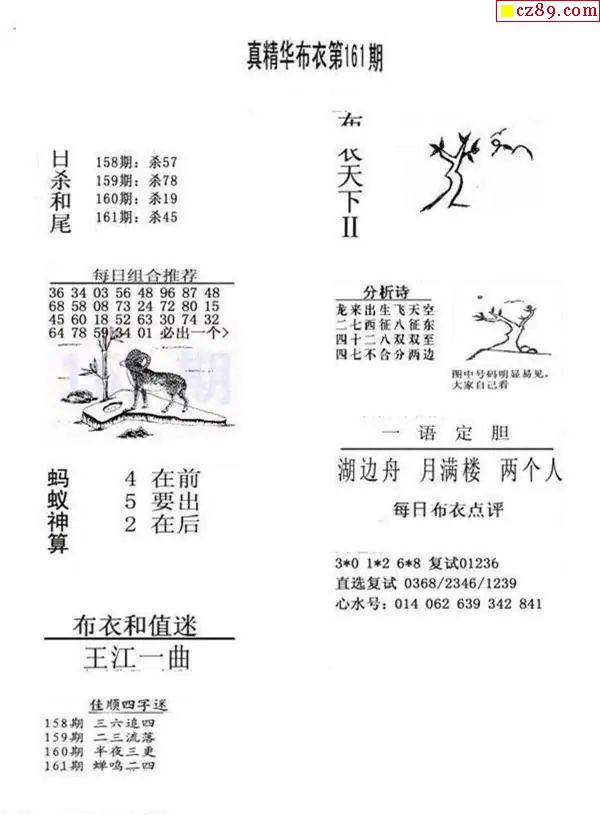 cz89.com
真精华布衣第161期
日杀和尾
158期：杀57
159期：杀78
160期：杀19
161期：杀45
布衣天下II
每日组合推荐
36 34 03 56 48 96 87 48
68 58 08 73 24 72 80 15
45 60 18 52 63 30 74 32
64 78 59 34 01 必出一个>
分析诗
龙来出生飞天空
二七西征八征东
四十二八双双至
四七不合分两边
图中号码明显易见，
大家自己看
一语定胆
湖边舟 月满楼 两个人
每日布衣点评
蚂蚁神算
4 在前
5 要出
2 在后
3*0 1*2 6*8 复试01236
直选复试 0368/2346/1239
心水号：014 062 639 342 841
布衣和值迷
王江一曲
佳顺四字迷
158期 三六追四
159期 二三流落
160期 半夜三更
161期 蝉鸣二四